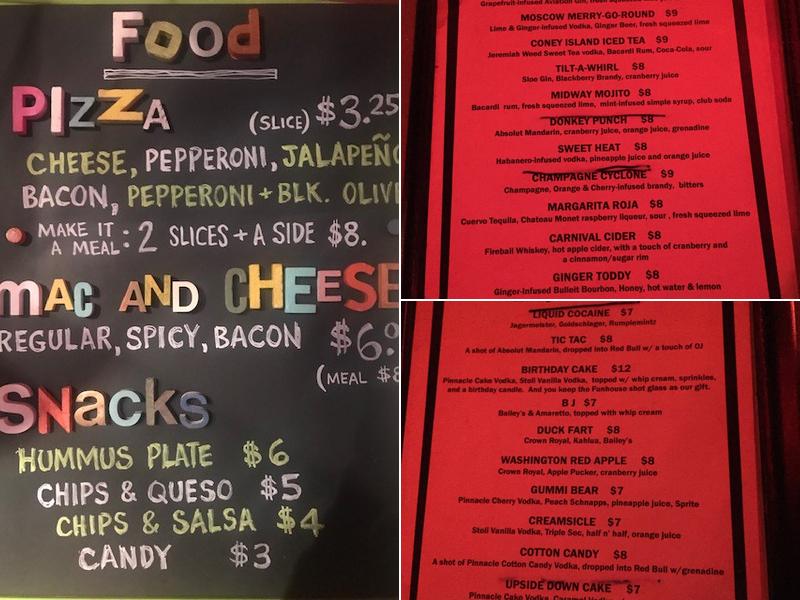 Food
PIZZA (SLICE) $3.25
CHEESE, PEPPERONI, JALAPEÑO
BACON, PEPPERONI + BLK. OLIV
MAKE IT A MEAL: 2 SLICES + A SIDE $8.
MAC AND CHEESE
REGULAR, SPICY, BACON $6.
(MEAL $8
SNacks
HUMMUS PLATE $6
CHIPS & QUESO $5
CHIPS & SALSA $4
CANDY $3
Grapefruit-infused Aviation Gin, fresh squeezed
MOSCOW MERRY-GO-ROUND $9
Lime & Ginger-infused Vodka, Ginger Beer, fresh squeezed lime
CONEY ISLAND ICED TEA $9
Jeremiah Weed Sweet Tea vodka, Bacardi Rum, Coca-Cola, sour
TILT-A-WHIRL $8
Sloe Gin, Blackberry Brandy, cranberry juice
MIDWAY MOJITO $8
Bacardi rum, fresh squeezed lime, mint-infused simple syrup, club soda
DONKEY PUNCH $8
Absolut Mandarin, cranberry juice, orange juice, grenadine
SWEET HEAT $8
Habanero-infused vodka, pineapple juice and orange juice
CHAMPAGNE CYCLONE $9
Champagne, Orange & Cherry-infused brandy, bitters
MARGARITA ROJA $8
Cuervo Tequila, Chateau Monet raspberry liqueur, sour , fresh squeezed lime
CARNIVAL CIDER $8
Fireball Whiskey, hot apple cider, with a touch of cranberry and
a cinnamon/sugar rim
GINGER TODDY $8
Ginger-infused Bulleit Bourbon, Honey, hot water & lemon
LIQUID COCAINE $7
Jagermeister, Goldschlager, Rumplemintz
TIC TAC $8
A shot of Absolut Mandarin, dropped into Red Bull w/ a touch of OJ
BIRTHDAY CAKE $12
Pinnacle Cake Vodka, Stoli Vanilla Vodka, topped w/ whip cream, sprinkles,
and a birthday candle. And you keep the Funhouse shot glass as our gift.
B J $7
Bailey's & Amaretto, topped with whip cream
DUCK FART $8
Crown Royal, Kahlua, Bailey's
WASHINGTON RED APPLE $8
Crown Royal, Apple Pucker, cranberry juice
GUMMI BEAR $7
Pinnacle Cherry Vodka, Peach Schnapps, pineapple juice, Sprite
CREAMSICLE $7
Stoli Vanilla Vodka, Triple Sec, half n' half, orange juice
COTTON CANDY $8
A shot of Pinnacle Cotton Candy Vodka, dropped into Red Bull w/grenadine
UPSIDE DOWN CAKE $7
Pinnacle Cake Vodka, Caramel Vodka,